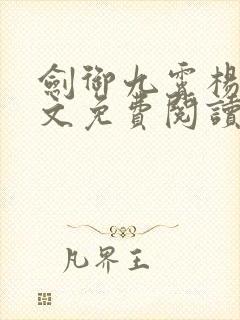 劍御九霄楊
文免費閱讀
凡界王